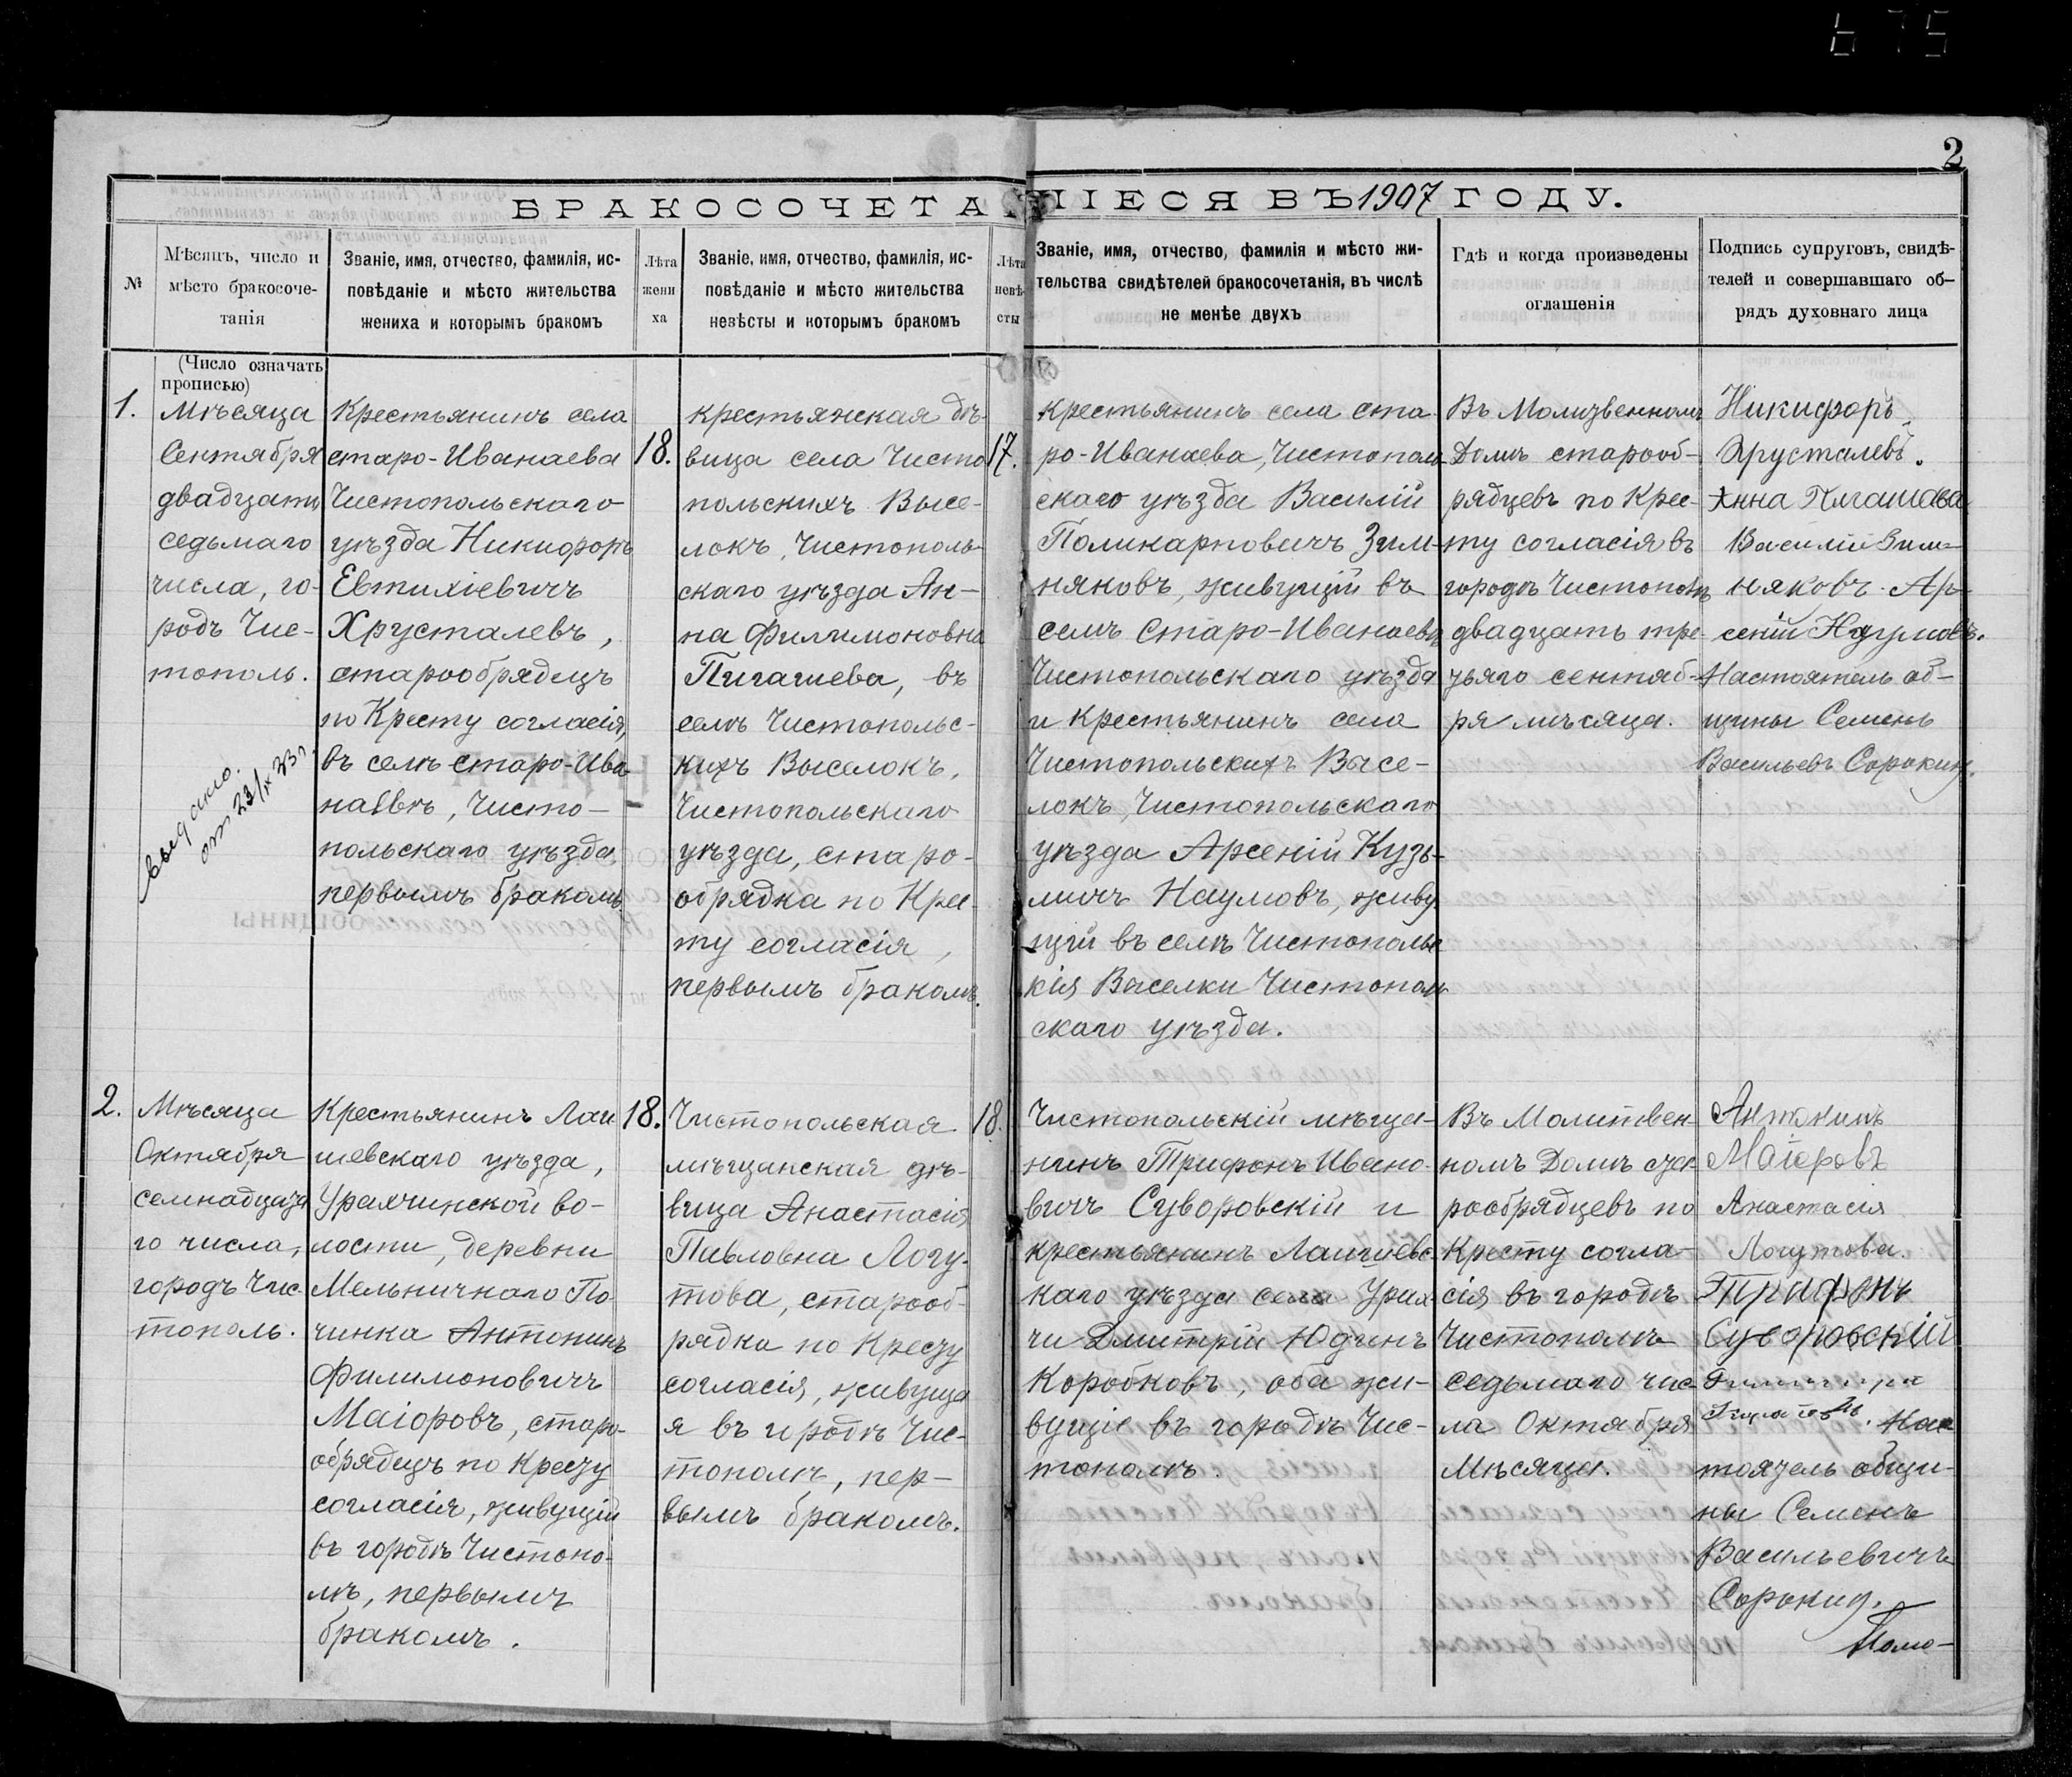 2
БРАКОСОЧЕТАВШІЕСЯ ВЪ 1907 ГОДУ.
№
Мѣсяцъ, число и
мѣсто бракосоче-
танія
Званіе, имя, отчество, фамилія, ис-
повѣданіе и мѣсто жительства
жениха и которымъ бракомъ
Лѣта
жени
ха
Званіе, имя, отчество, фамилія, ис-
повѣданіе и мѣсто жительства
невѣсты и которымъ бракомъ
Лѣта
невѣ-
сты
Званіе, имя, отчество, фамилія и мѣсто жи-
тельства свидѣтелей бракосочетанія, въ числѣ
не менѣе двухъ
Гдѣ и когда произведены
оглашенія
Подпись супруговъ, свидѣ-
телей и совершавшаго об-
рядъ духовнаго лица
(Число означать
прописью)
1.
Мѣсяца
Сентября
двадцать
седьмаго
числа, го-
родъ Чис-
тополь.
Выдано.
от 23/IX 23 г.
Крестьянинъ села
старо-Иванаева
Чистопольскаго
уѣзда Никифоръ
Евтихіевичъ
Хрусталевъ,
старообрядецъ
по Кресту согласія,
въ селѣ старо-Ива
наевѣ, Чисто-
польскаго уѣзда,
первымъ бракомъ.
18.
крестьянская дѣ-
вица села Чисто
польскихъ Высе-
локъ, Чистополь-
скаго уѣзда Ан-
на Филлимоновна
Пигашева, въ
селѣ Чистопольс-
кихъ Выселокъ,
Чистопольскаго
уѣзда, старо-
обрядка по Крес-
ту согласія,
первымъ бракомъ.
17.
крестьянинъ села ста-
ро-Иванаева, Чистополь-
скаго уѣзда Василій
Поликарповичъ Зим-
няковъ, живущій въ
селѣ Старо-Иванаевѣ
Чистопольскаго уѣзда
и Крестьянинъ села
Чистопольскихъ Высе-
локъ, Чистопольскаго
уѣзда Арсеній Кузь-
мичъ Наумовъ, живу
щій въ селѣ Чистополь
кія Выселки Чистополь
скаго уѣзда.
Въ Молитвенномъ
Домѣ старооб-
рядцевъ по Крес-
ту согласія въ
городѣ Чистополѣ
двадцать тре-
тьяго сентяб-
ря мѣсяца.
Никифоръ
Хрусталевъ.
Анна Пигашева
Василій Зим-
няковъ. Ар-
сеній Наумовъ.
Настоятель об-
щины Семенъ
Васильевъ Сорокин.
2.
Мѣсяца
Октября
семнадцата
го числа,
городъ Чис-
тополь.
Крестьянинъ Лаи
шевскаго уѣзда,
Урахчинской во-
лости, деревни
Мельничнаго По-
чинка Антонинъ
Филимоновичъ
Маіоровъ, старо-
обрядецъ по Кресту
согласія, живущій
въ городѣ Чистопо-
лѣ, первымъ
бракомъ.
18.
Чистопольская
мѣщанская дѣ-
вица Анастасія
Павловна Логу-
това, старооб-
рядка по Кресту
согласія, живуща
я въ городѣ Чис-
тополѣ, пер-
вымъ бракомъ.
18.
Чистопольскій мѣща-
нинъ Трифонъ Ивано-
вичъ Суворовскій и
крестьянинъ Лаишевс-
каго уѣзда села Урах
чи Дмитрій Юдинъ
Коробковъ, оба жи-
вущіе въ городѣ Чис-
тополѣ.
Въ Молитвен-
номъ Домѣ ста
рообрядцевъ по
Кресту согла-
сія въ городѣ
Чистополѣ
седьмаго чис-
ла Октября
Мѣсяца.
Антонинъ
Маіоровъ
Анастасія
Логутова.
Трифонъ
Суворовскій
Нас
тоятель общи-
ны Семенъ
Васильевичъ
Сорокин.